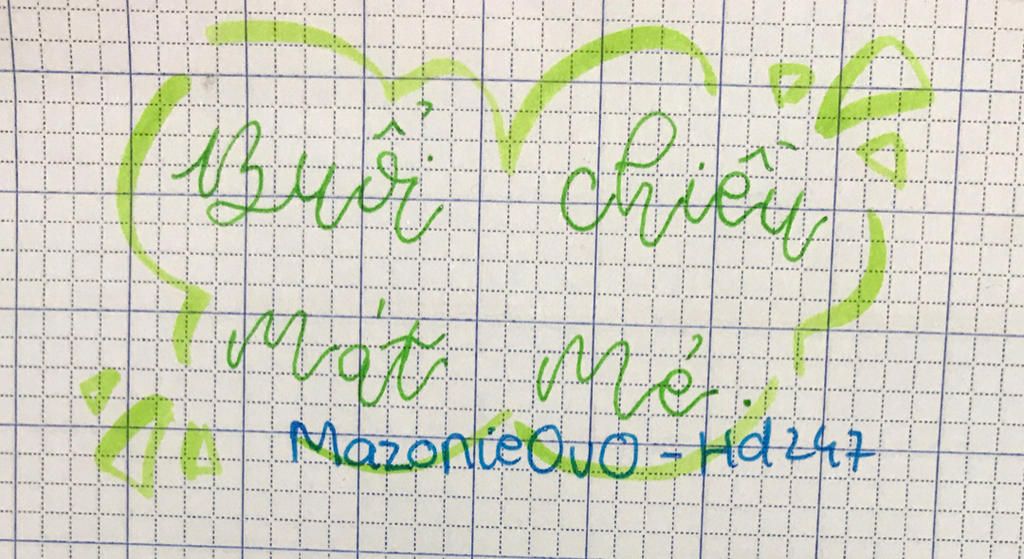 Buổi chiều
mát mẻ.
MazonieOvO - Hd247